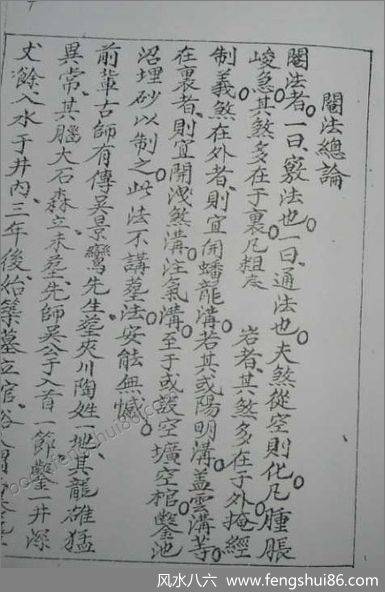 闇法總論
闇法者一曰竅法也一曰通法也夫煞從空則化凡腫脹
峻急其煞多在于裏凡粗 岩者其煞多在于外掩經
制義煞在外者則宜開蟠龍溝若其或陽明溝蓋雲溝等
在裏者則宜開洩煞溝注氣溝至于或設空壙空棺鑿池
沼埋砂以制之此法不講墓法安能無憾
前輩古師有傳吳景鸞先生塟夾川陶姓一地其龍雄猛
異常其腦大石森立未塟先師吳公于入首一節鑿一井深
丈餘入水于井內三年後始築墓立官
風水八六 www.fengshui86.com